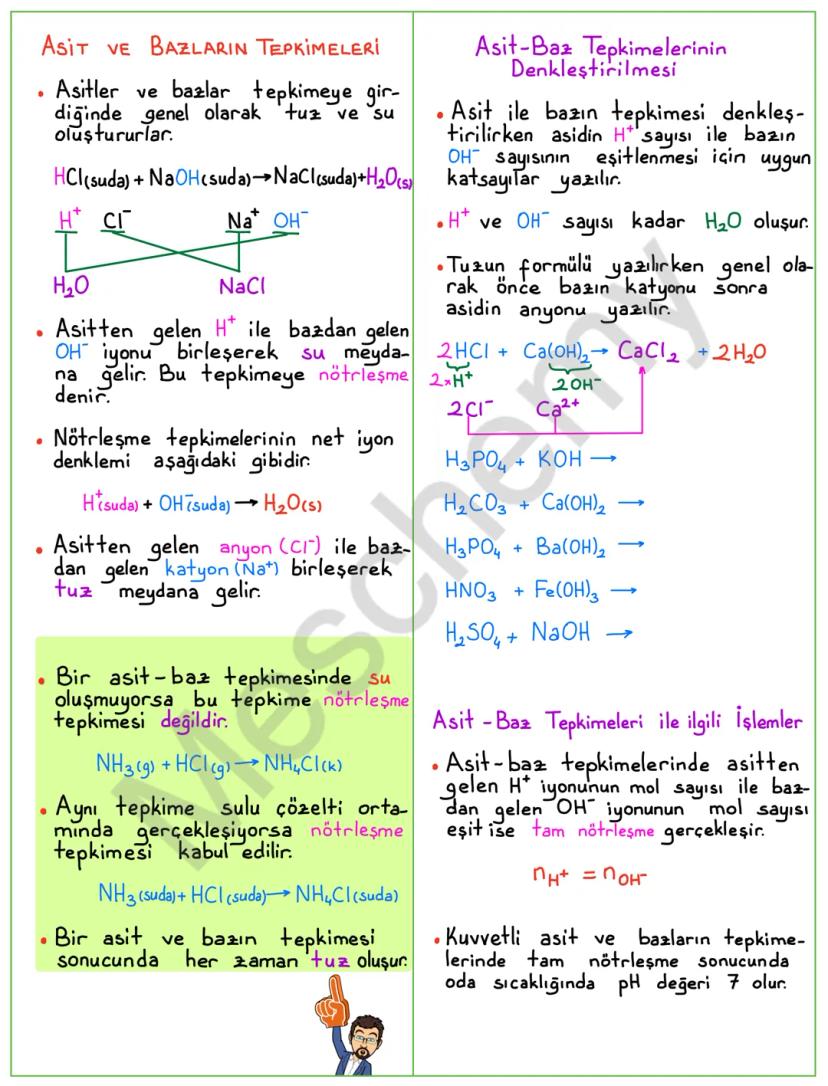 ASİT VE BAZLARIN TEPKİMELERİ
• Asitler ve bazlar tepkimeye gir-
diğinde genel olarak tuz ve su
oluştururlar.
HCl(suda) + NaOH(suda)→NaCl(suda)+H₂O(s)
H⁺ Cl⁻ Na⁺ OH⁻
H₂O NaCl
• Asitten gelen H⁺ ile bazdan gelen
OH⁻ iyonu birleşerek su meyda-
na gelir. Bu tepkimeye nötrleşme
denir.
• Nötrleşme tepkimelerinin net iyon
denklemi aşağıdaki gibidir.
H⁺(suda) + OH⁻(suda) → H₂O(s)
• Asitten gelen anyon (Cl⁻) ile baz-
dan gelen katyon (Na⁺) birleşerek
tuz meydana gelir.
• Bir asit-baz tepkimesinde su
oluşmuyorsa bu tepkime nötrleşme
tepkimesi değildir.
NH₃(g) + HCl(g) → NH₄Cl(k)
• Aynı tepkime sulu çözelti orta-
mında gerçekleşiyorsa nötrleşme
tepkimesi kabul edilir.
NH₃(suda) + HCl(suda) → NH₄Cl(suda)
• Bir asit ve bazın tepkimesi
sonucunda her zaman tuz oluşur.
Asit-Baz Tepkimelerinin
Denkleştirilmesi
• Asit ile bazın tepkimesi denkleş-
tirilirken asidin H⁺ sayısı ile bazın
OH⁻ sayısının eşitlenmesi için uygun
katsayılar yazılır.
• H⁺ ve OH⁻ sayısı kadar H₂O oluşur.
• Tuzun formülü yazılırken genel ola-
rak önce bazın katyonu sonra
asidin anyonu yazılır.
2HCl + Ca(OH)₂ → CaCl₂ + 2H₂O
2×H⁺ 2OH⁻
2Cl⁻ Ca²⁺
H₃PO₄ + KOH →
H₂CO₃ + Ca(OH)₂ →
H₃PO₄ + Ba(OH)₂ →
HNO₃ + Fe(OH)₃ →
H₂SO₄ + NaOH →
Asit-Baz Tepkimeleri ile ilgili İşlemler
• Asit-baz tepkimelerinde asitten
gelen H⁺ iyonunun mol sayısı ile baz-
dan gelen OH⁻ iyonunun mol sayısı
eşit ise tam nötrleşme gerçekleşir.
nH⁺ = nOH⁻
• Kuvvetli asit ve bazların tepkime-
lerinde tam nötrleşme sonucunda
oda sıcaklığında pH değeri 7 olur.
Meschemy